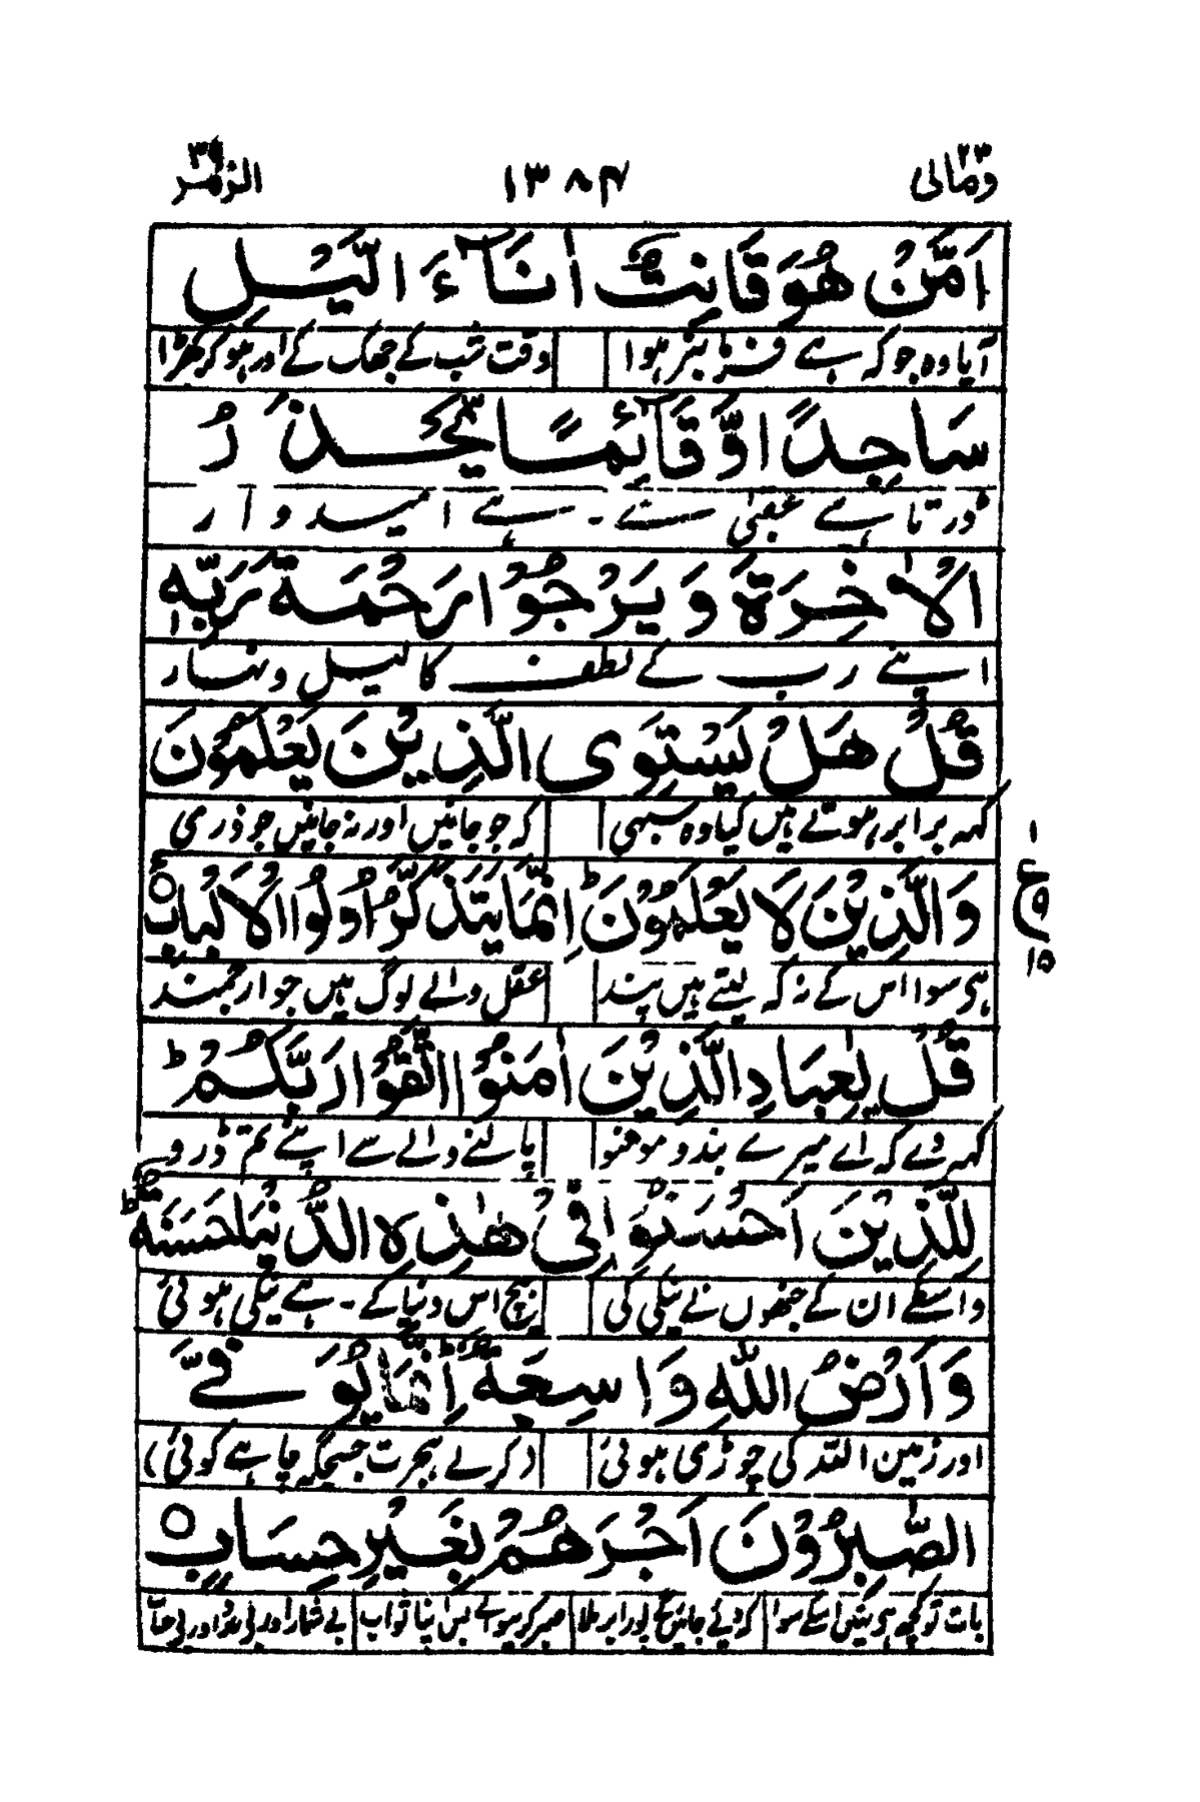 ومالی ۲۳ ۱۳۸۴ الزمر ۳۹
اَمَّنْ هُوَ قَانِتٌ اٰنَآءَ الَّيْلِ
آیا وہ جو کہ ہے بنر ہوا وقت شب کے جھک کے اور ہو کر کھڑا
سَاجِدًا اوَّقَآئِمًا يَّحْذَرُ
ڈرتا ہے عقبیٰ سے ۔ ہے امیدوار
الْاٰخِرَةَ وَيَرْجُوْا رَحْمَةَ رَبِّهٖ
اپنے رب کے لطف کا لیل و نہار
قُلْ هَلْ يَسْتَوِى الَّذِيْنَ يَعْلَمُوْنَ
کہہ برابر ہوتے ہیں کیا وہ سبھی کہ جو جانیں اور نہ جانیں جو ذری
وَالَّذِيْنَ لَا يَعْلَمُوْنَ ؕ اِنَّمَا يَتَذَكَّرُ اُولُوا الْاَلْبَابِ ۝
۱ ع ۹ ۱۵
ہی سوا اس کے نہ کہ لیتے ہیں پند عقل والے لوگ ہیں جو ارجمند
قُلْ يٰعِبَادِ الَّذِيْنَ اٰمَنُوْا اتَّقُوْا رَبَّكُمْ ؕ
کہہ دے کہ اے میرے بندو مومنو پالنے والے سے اپنے تم ڈرو
لِلَّذِيْنَ اَحْسَنُوْا فِىْ هٰذِهِ الدُّنْيَا حَسَنَةٌ ؕ
واسطے ان کے جنھوں نے نیکی کی بیچ اس دنیا کے ۔ ہے نیکی ہوئی
وَاَرْضُ اللّٰهِ وَاسِعَةٌ ؕ اِنَّمَا يُوَفَّى
اور زمین اللہ کی چوڑی ہوئی (کرلے ہجرت جس جگہ چاہے کوئی)
الصّٰبِرُوْنَ اَجْرَهُمْ بِغَيْرِ حِسَابٍ ۝
بات تو کچھ ہی نہیں اسکے سوا کہ دیئے جائیں گے پورا برملا صبر کرنیوالے بس اپنا ثواب بے شمار اور